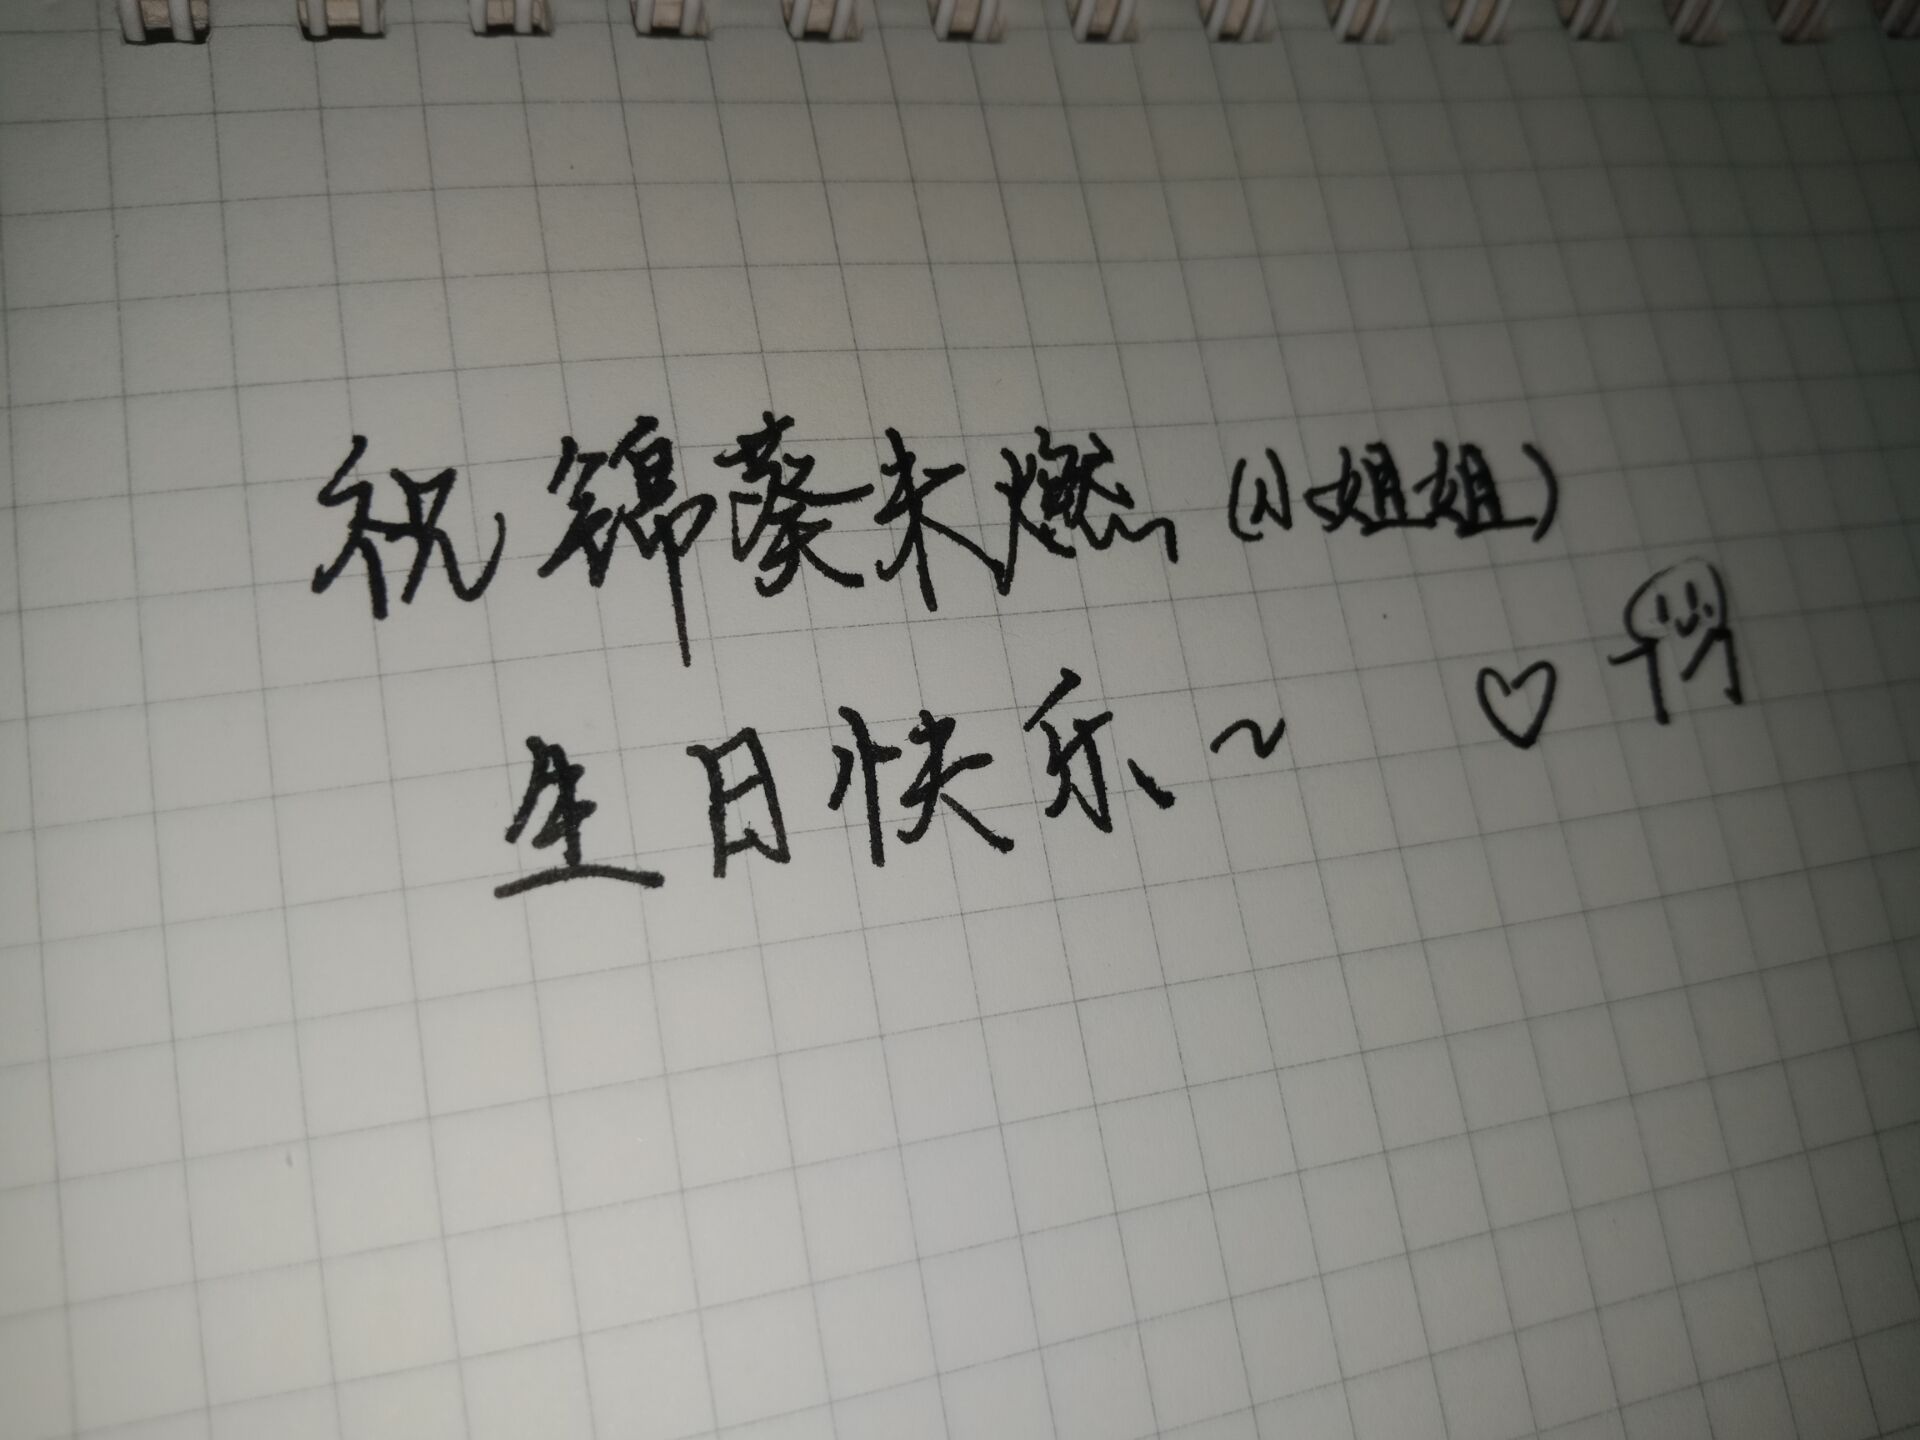 祝锦葵未燃(小姐姐)
生日快乐~